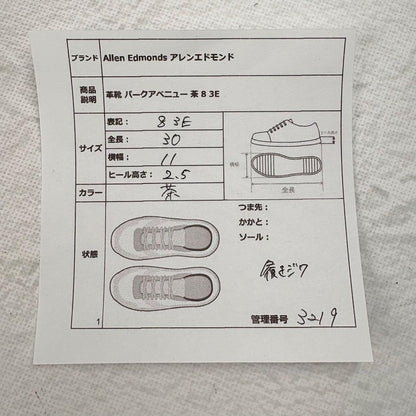 ブランド Allen Edmonds アレンエドモンド
商品説明 革靴 パークアベニュー 茶 8 3E
サイズ
表記： 8 3E
全長： 30
横幅： 11
ヒール高さ： 2.5
横幅
ヒール高さ
全長
カラー 茶
状態
つま先：
かかと：
ソール：
履きジワ
1
管理番号 3219